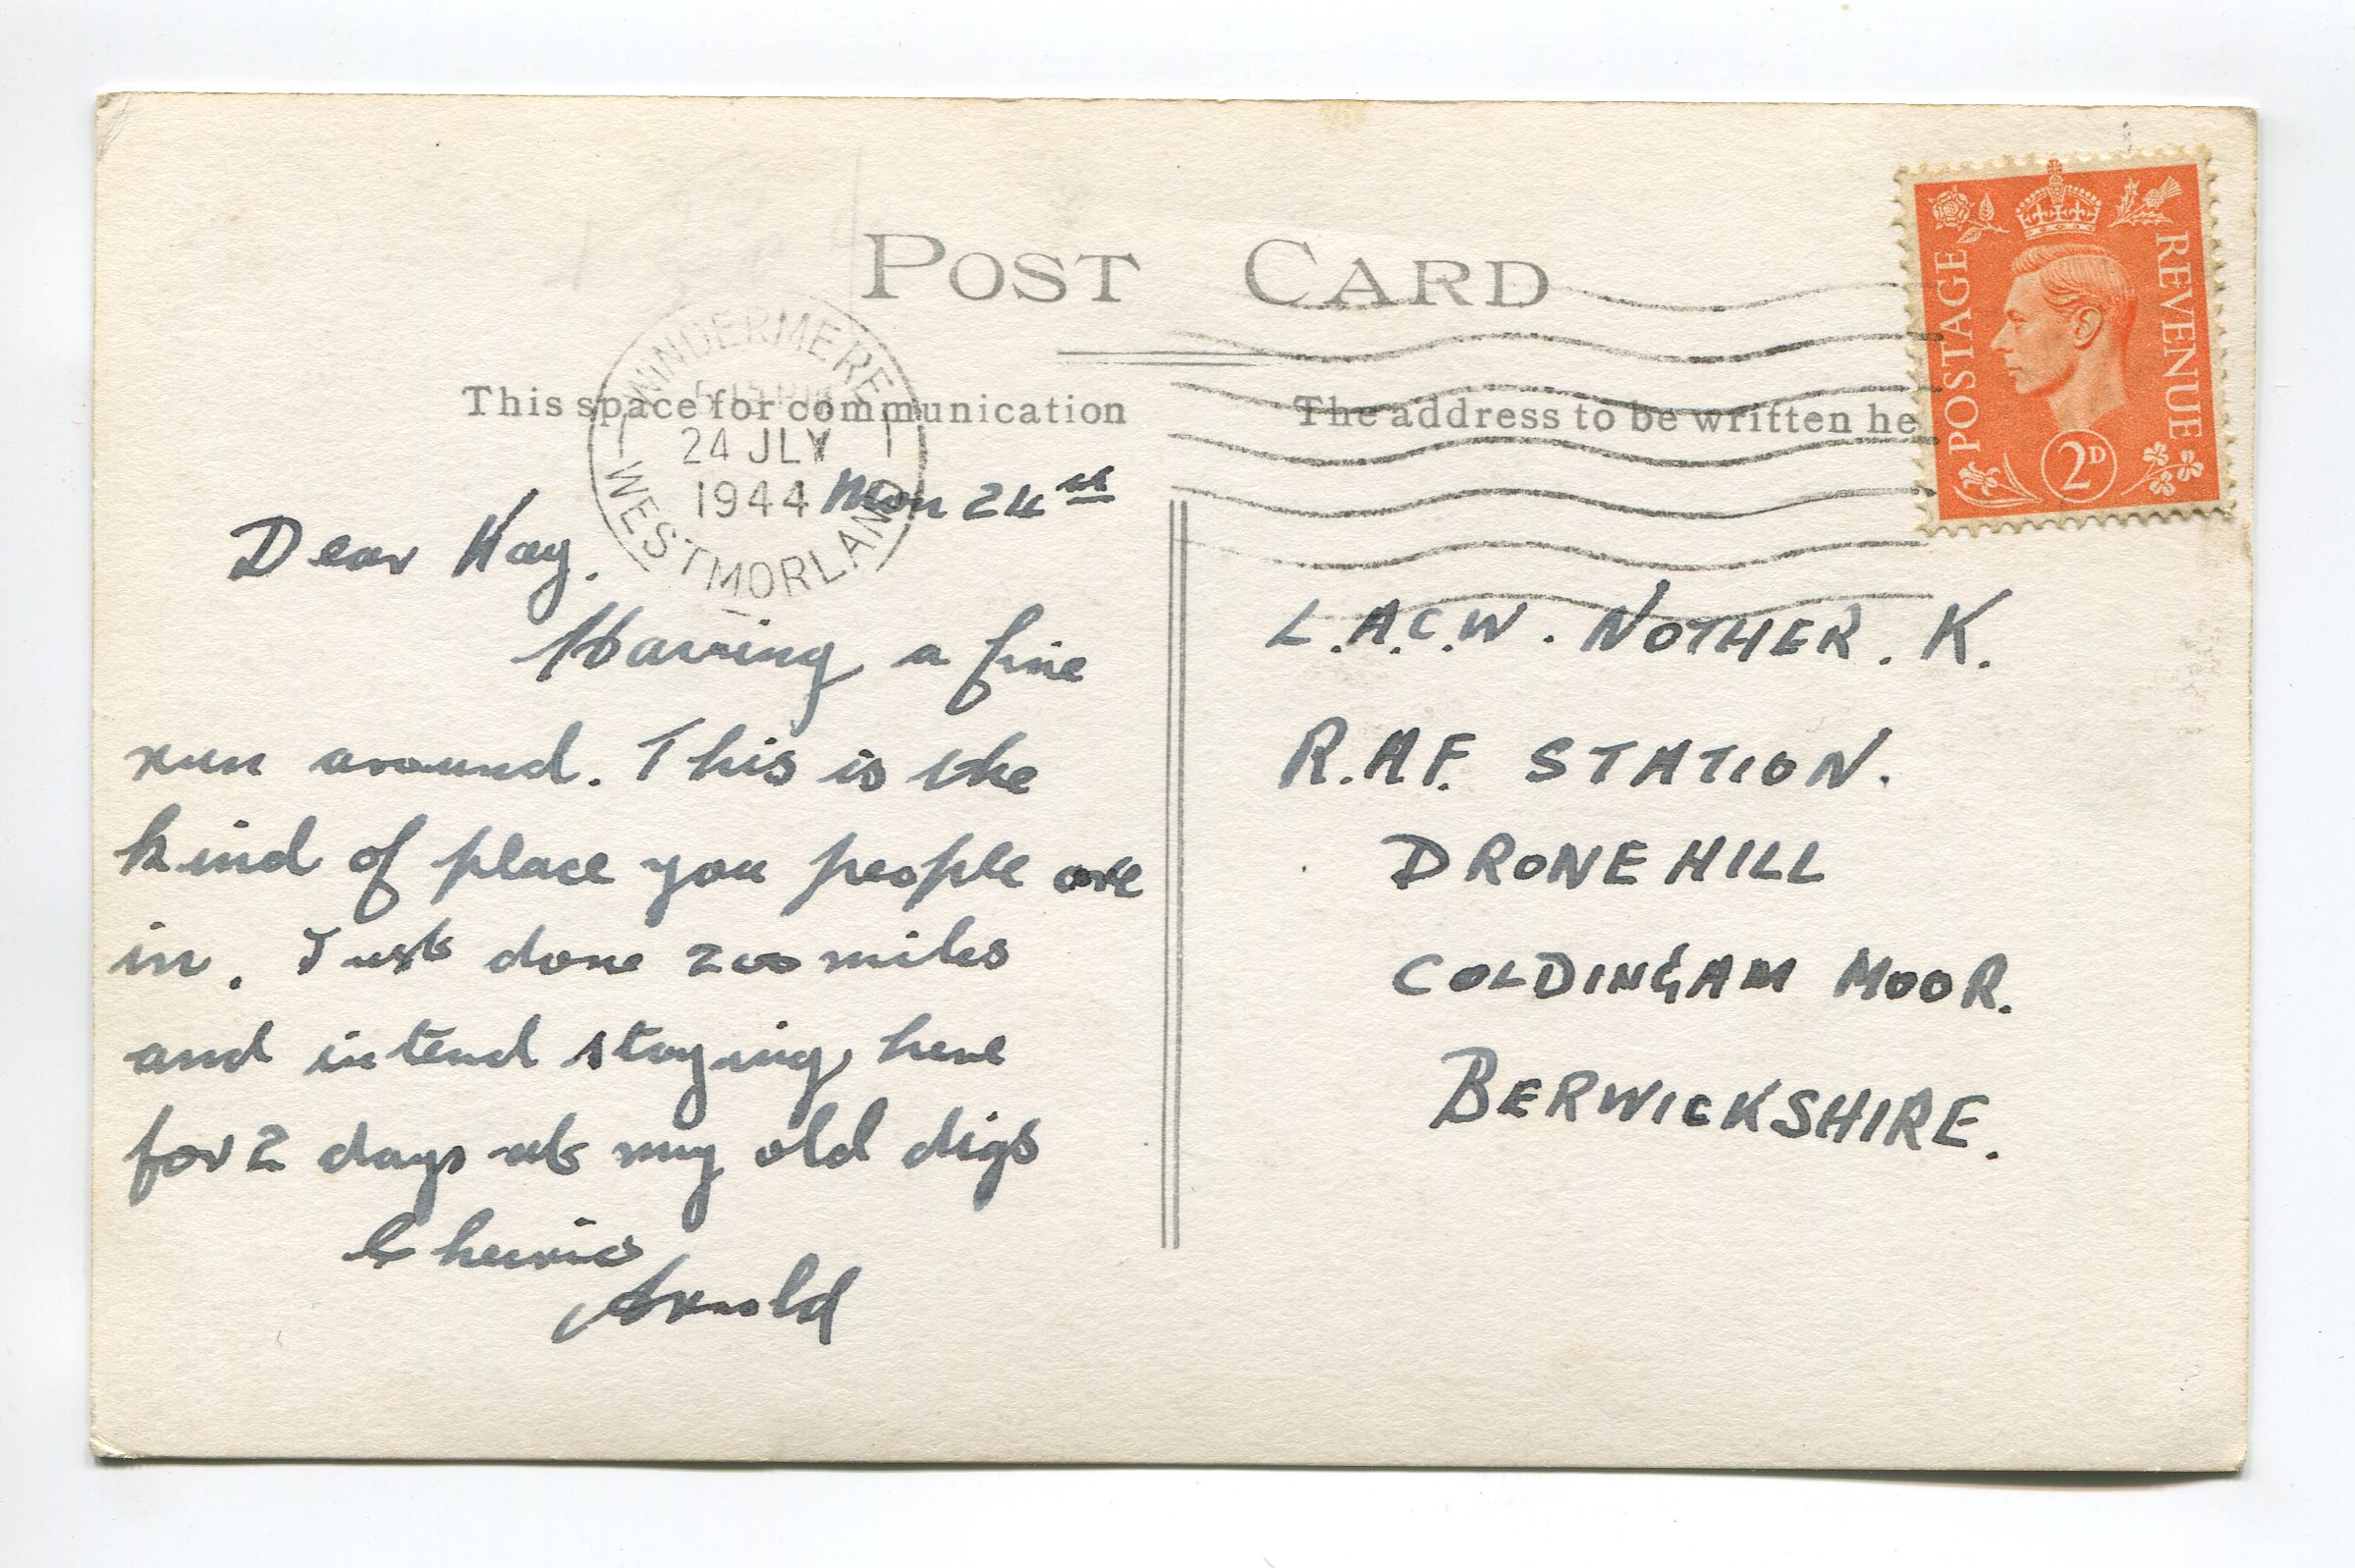 POST CARD
This space for communication
The address to be written he
WINDERMERE
24 JLY
1944
WESTMORLAND
POSTAGE
REVENUE
2D
Mon 24th
Dear Kay.
Having a fine
run around. This is the
kind of place you people are
in. Just done 200 miles
and intend staying here
for 2 days at my old digs
Cheerio
Arnold
L.A.C.W. NOTHER. K.
R.A.F. STATION.
DRONE HILL
COLDINGAM MOOR.
BERWICKSHIRE.